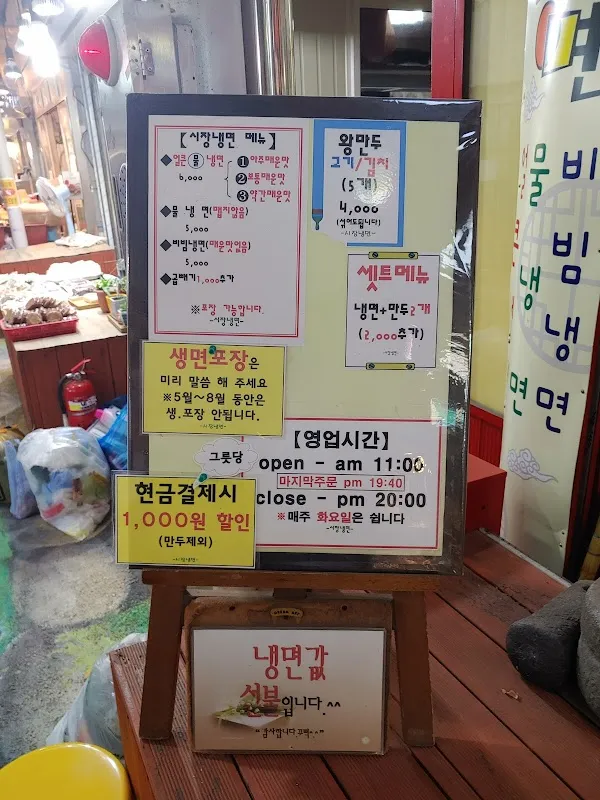 【시장냉면 메뉴】
◆얼큰 물 냉면 ❶아주매운맛
6,000 ❷보통매운맛
❸약간매운맛
◆물 냉 면(맵지않음)
5,000
◆비빔냉면(매운맛있음)
5,000
◆곱빼기1,000추가
※포장 가능합니다.
-시장냉면-
왕만두
고기/김치
(5개)
4,000
(섞어도됩니다)
-시장냉면-
셋트메뉴
냉면+만두2개
(2,000추가)
-시장냉면-
생면포장은
미리 말씀 해 주세요
※5월~8월 동안은
생.포장 안됩니다.
-시장냉면-
【영업시간】
open - am 11:00
마지막주문 pm 19:40
close - pm 20:00
※매주 화요일은 쉽니다
-시장냉면-
그릇당
현금결제시
1,000원 할인
(만두제외)
-시장냉면-
냉면값
선불입니다.^^
"감사합니다.꾸벅^^"
면
물
냉
면
비
빔
냉
면